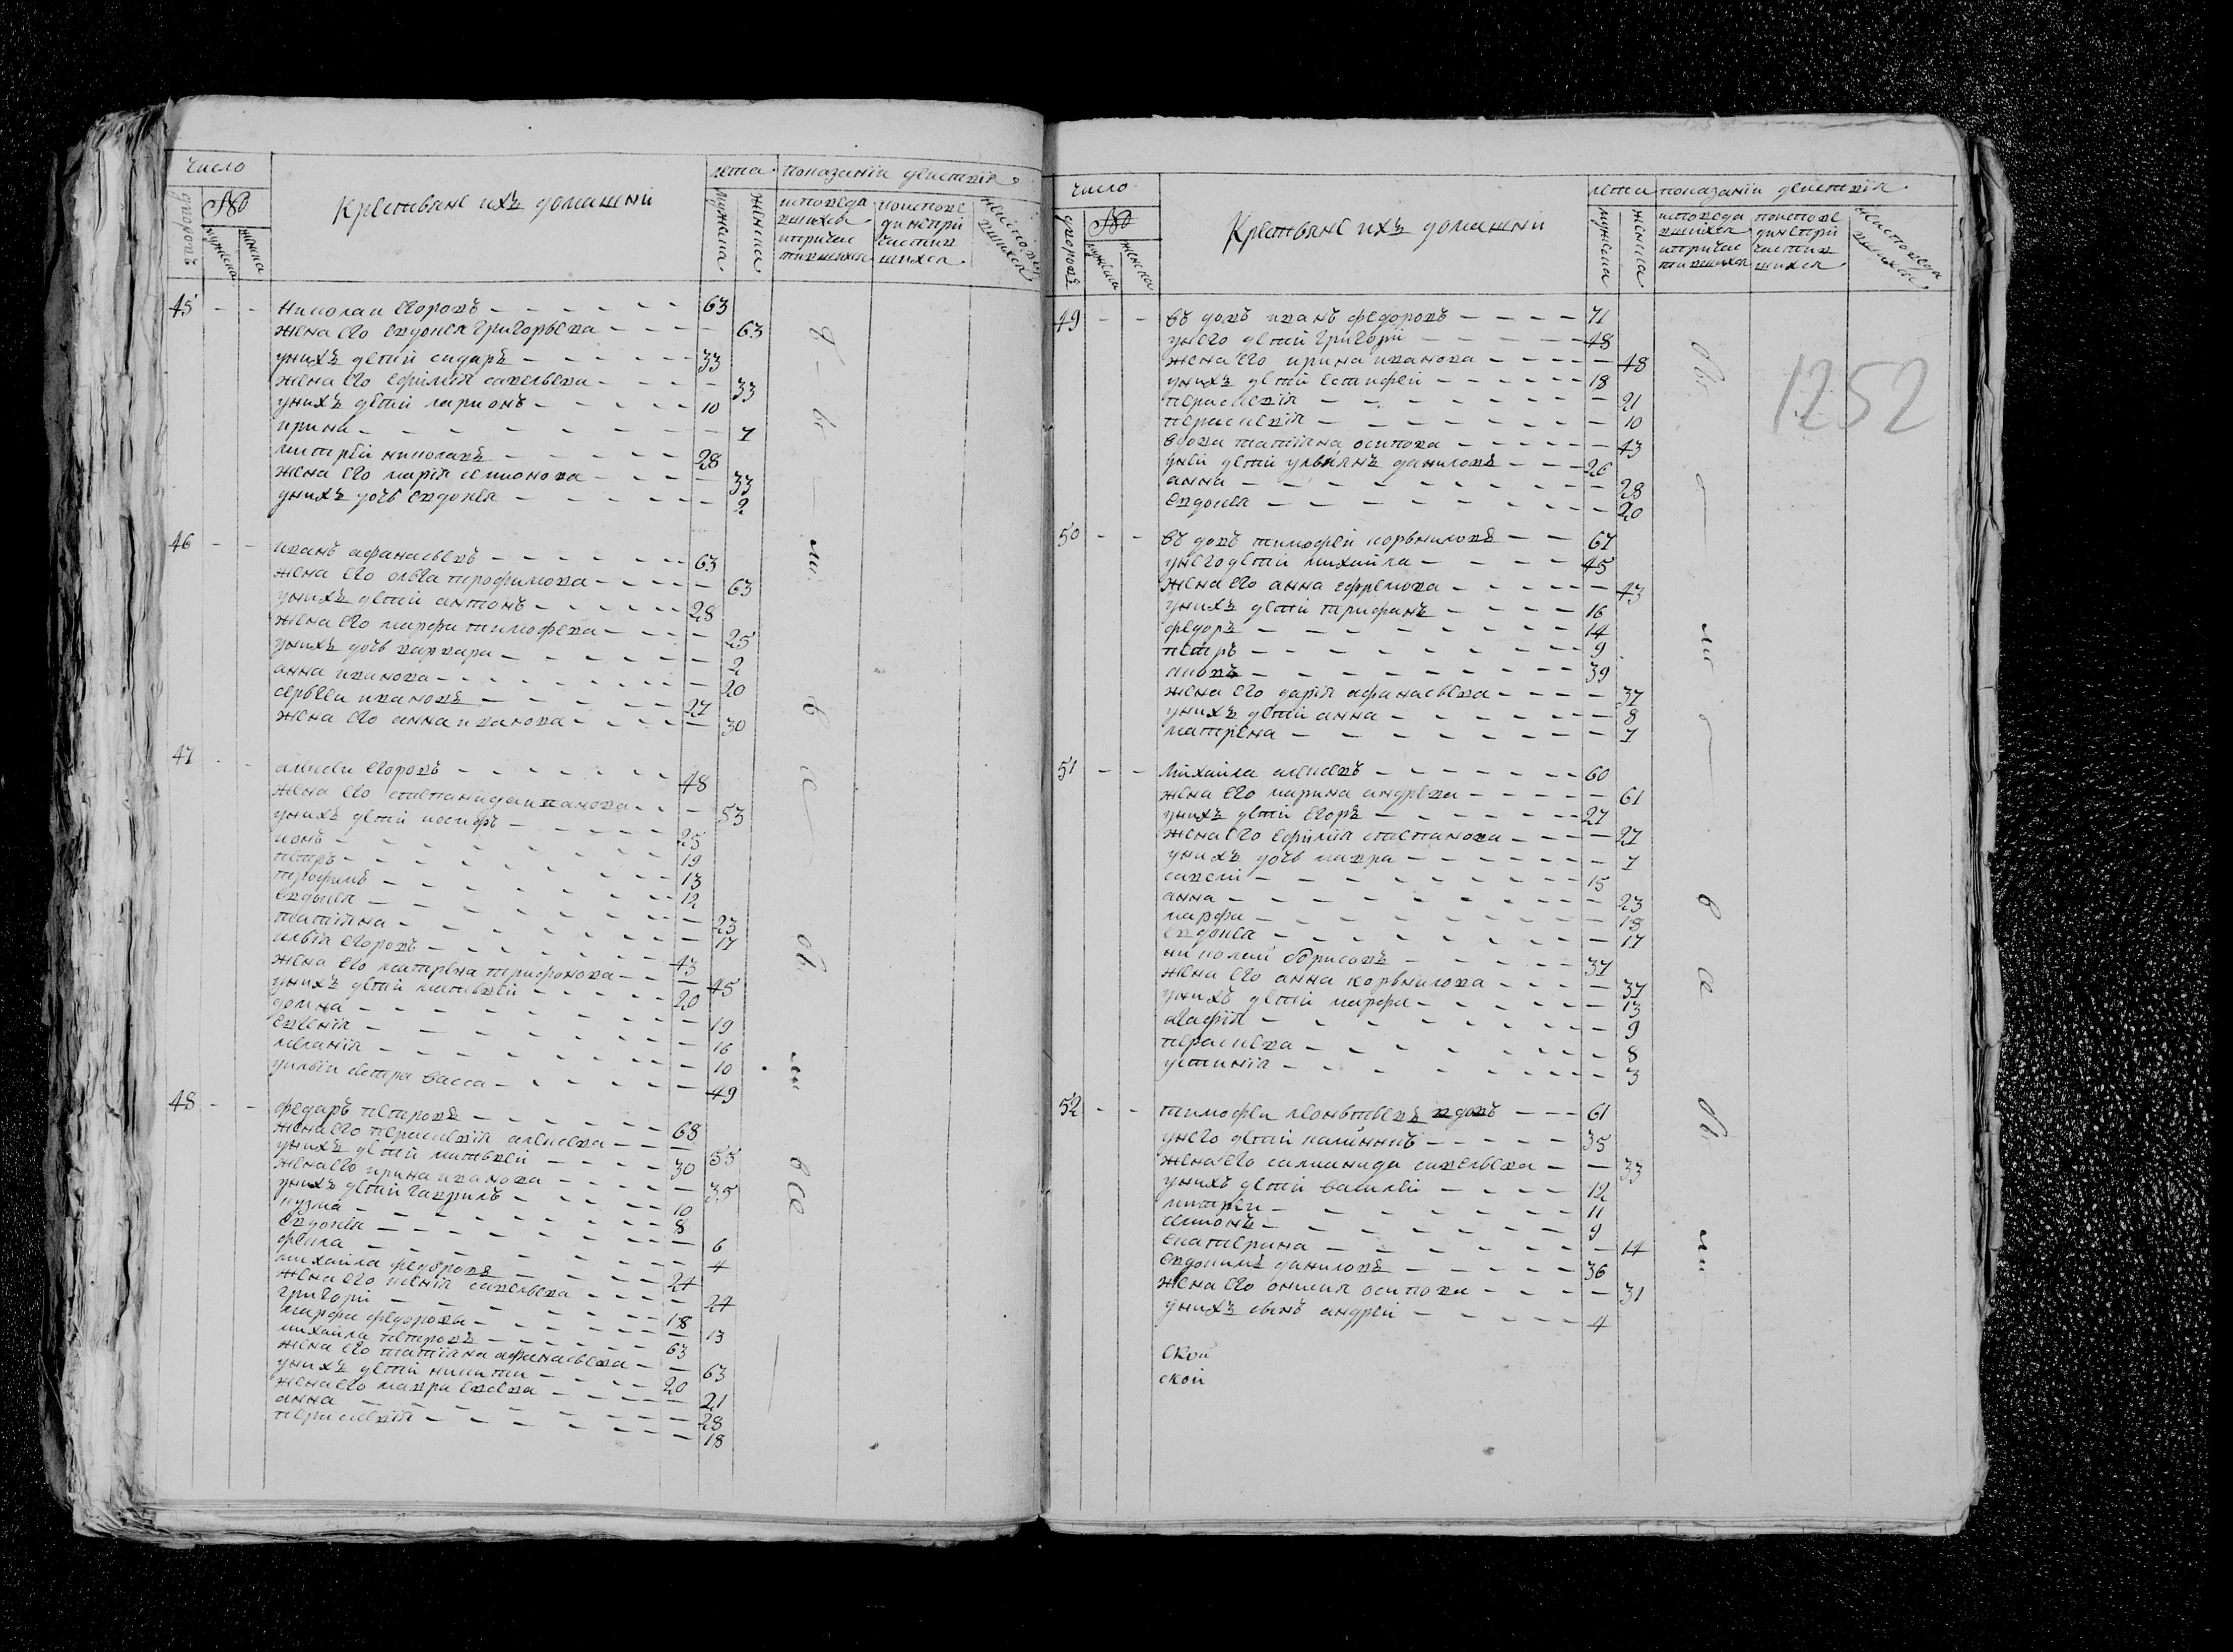 число
лета показанїи действїя
Крестьяне ихъ домашнїи
дворовъ
мужеска
женска
мужеска
женска
исповеда
вшихся
ипричас
тившихся
поиспове
динепри
частив
шихся
неисповеда
вшихся
45 - - николаи егоровъ - 63
жена его евдокея григорьева - 63
унихъ детей сидаръ - 33
жена его ефимїя савельева - 33
унихъ детей ларионъ - 10
ирина - 7
митрей николавъ - 28
жена его марїя семионова - 33
унихъ дочь евдокея - 2
46 - - иванъ афанасьевъ - 63
жена его ольга трофимова - 63
унихъ детей антонъ - 28
жена его марфа тимофева - 25
унихъ дочь варвара - 2
анна иванова - 20
сергеи ивановъ - 27
жена его анна иванова - 30
47 - - алексеи егоровъ - 48
жена его степанида иванова - 53
унихъ детей иосифъ - 25
ионъ - 19
петръ - 13
трофимъ - 12
евдокея - 23
татияна - 17
илья егоровъ - 43
жена его матрена трифонова - 45
унихъ детей матвей - 20
домна - 19
евгения - 16
меланїя - 10
уильи сестра васса - 49
48 - - федаръ петровъ - 68
жена его перасковїя алексева - 55
унихъ детей матвей - 30
жена его ирина иванова - 35
унихъ детей гаврилъ - 10
кузма - 8
евдокея - 6
фекла - 4
михаила федоровъ - 24
жена его ксения савельева - 24
григорїи - 18
марфа федорова - 13
михаила петровъ - 63
жена его татияна афанасьева - 63
унихъ детей никита - 20
жена его мавра евсева - 21
анна - 28
перасковїя - 18
число
лета показанїи действїя
Крестьяне ихъ домашнїи
дворовъ
мужеска
женска
мужеска
женска
исповеда
вшихся
ипричас
тившихся
поиспове
динепри
частив
шихся
неисповеда
вшихся
1252
49 - - въ довъ иванъ федоровъ - 71
унего детей григорїи - 48
жена его ирина иванова - 48
унихъ детей естифеи - 18
перасковїя - 21
перасковїя - 10
вдова татияна осипова - 43
уней детей ульянъ даниловъ - 26
анна - 28
евдокея - 20
50 - - въ довъ тимофеи корьниловъ - 67
унего детей михаила - 45
жена его анна ефремова - 43
унихъ детей трифанъ - 16
федоръ - 14
петръ - 9
аковъ - 39
жена его дарїя афанасьева - 37
унихъ детей анна - 8
матрена - 7
51 - - Михаила алексевъ - 60
жена его марина андрева - 61
унихъ детей егоръ - 27
жена его ефимия степанова - 27
унихъ дочь мавра - 7
савелї - 15
анна - 23
марфа - 19
евдокея - 17
николай борисовъ - 37
жена его анна корьнилова - 37
унихъ детей марфа - 13
агафїя - 9
парасковя - 8
устинїя - 3
52 - - тимофеи леоньтьевъ вдовъ - 61
унего детей калинникъ - 35
жена его саламанида савельева - 33
унихъ детей василей - 12
митреи - 11
семионъ - 9
екатерина - 14
евдокимъ даниловъ - 36
жена его осипова - 31
унихъ сынъ андрей - 4
ской
ской